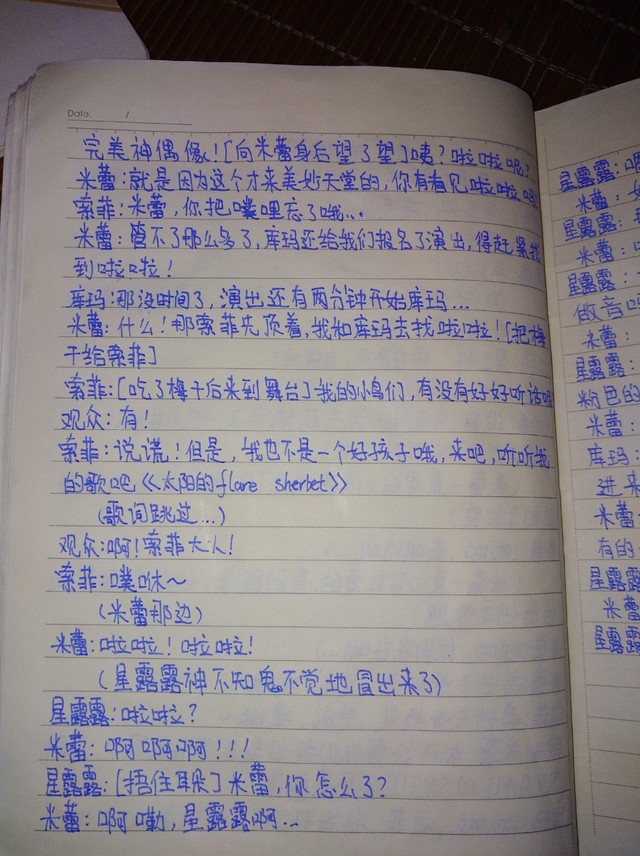 Date. /
完美神偶像！[向米蕾身后望了望]咦？啦啦呢？
米蕾：就是因为这个才来美妙天堂的，你有看见啦啦吗
索菲：米蕾，你把噗哩忘了哦...
米蕾：管不了那么多了，库玛还给我们报名了演出，得赶紧找
到啦啦！
库玛：那没时间了，演出还有两分钟开始库玛...
米蕾：什么！那索菲先顶着，我和库玛去找啦啦！[把梅
干给索菲]
索菲：[吃了梅干后来到舞台]我的小鸟们，有没有好好听话呢
观众：有！
索菲：说谎！但是，我也不是一个好孩子哦，来吧，听听我
的歌吧《太阳的flare sherbet》
（歌间跳过...）
观众：啊！索菲大人！
索菲：噗咻～
（米蕾那边）
米蕾：啦啦！啦啦！
（星露露神不知鬼不觉地冒出来了）
星露露：啦啦？
米蕾：啊啊啊！！！
星露露：[捂住耳朵]米蕾，你怎么了？
米蕾：啊嘞，星露露啊...
星露露：
米蕾：
星露露：
米蕾：
星露露：
做音
米蕾：
星露露：
粉色的
米蕾：
库玛：
进来
米蕾：
有的
星露露
米蕾
星露露